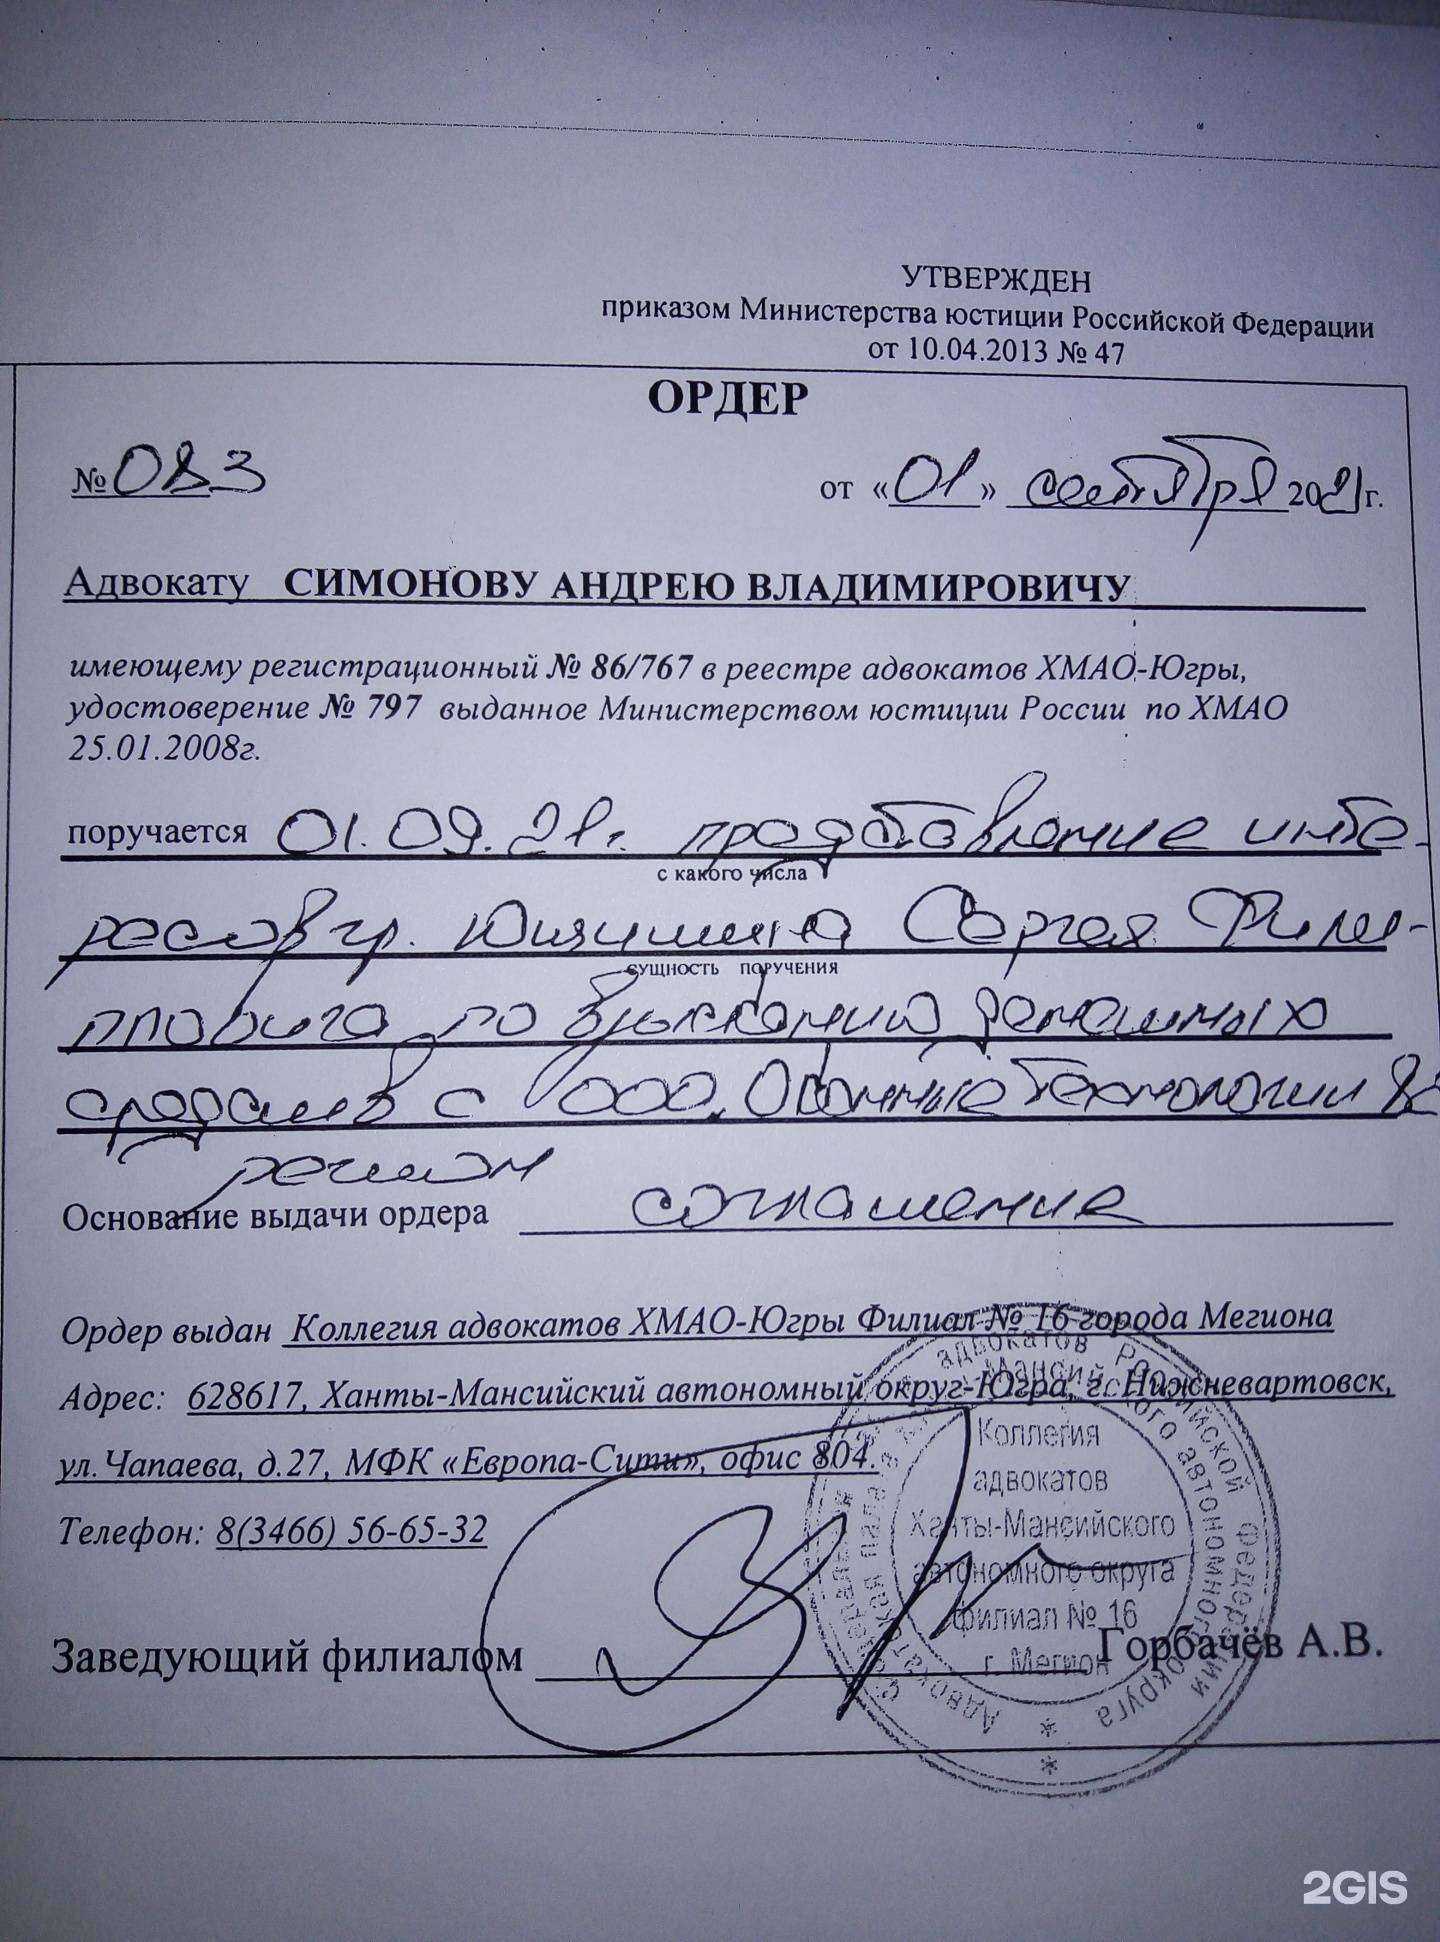 УТВЕРЖДЕН
приказом Министерства юстиции Российской Федерации
от 10.04.2013 № 47
ОРДЕР
№ 083 от «01» сентября 2021г.
Адвокату СИМОНОВУ АНДРЕЮ ВЛАДИМИРОВИЧУ
имеющему регистрационный № 86/767 в реестре адвокатов ХМАО-Югры,
удостоверение № 797 выданное Министерством юстиции России по ХМАО
25.01.2008г.
поручается 01.09.21г. представление инте-
с какого числа
ресов гр. Сергея Фили-
сущность поручения
пповича по взысканию денежных
средств с ООО "Оконные технологии
регион
Основание выдачи ордера соглашение
Ордер выдан Коллегия адвокатов ХМАО-Югры Филиал № 16 города Мегиона
Адрес: 628617, Ханты-Мансийский автономный округ-Югра, г. Нижневартовск,
ул. Чапаева, д.27, МФК «Европа-Сити», офис 804.
Телефон: 8(3466) 56-65-32
Заведующий филиалом Горбачёв А.В.
Коллегия
адвокатов
Ханты-Мансийского
автономного округа
филиал № 16
г. Мегион
2GIS